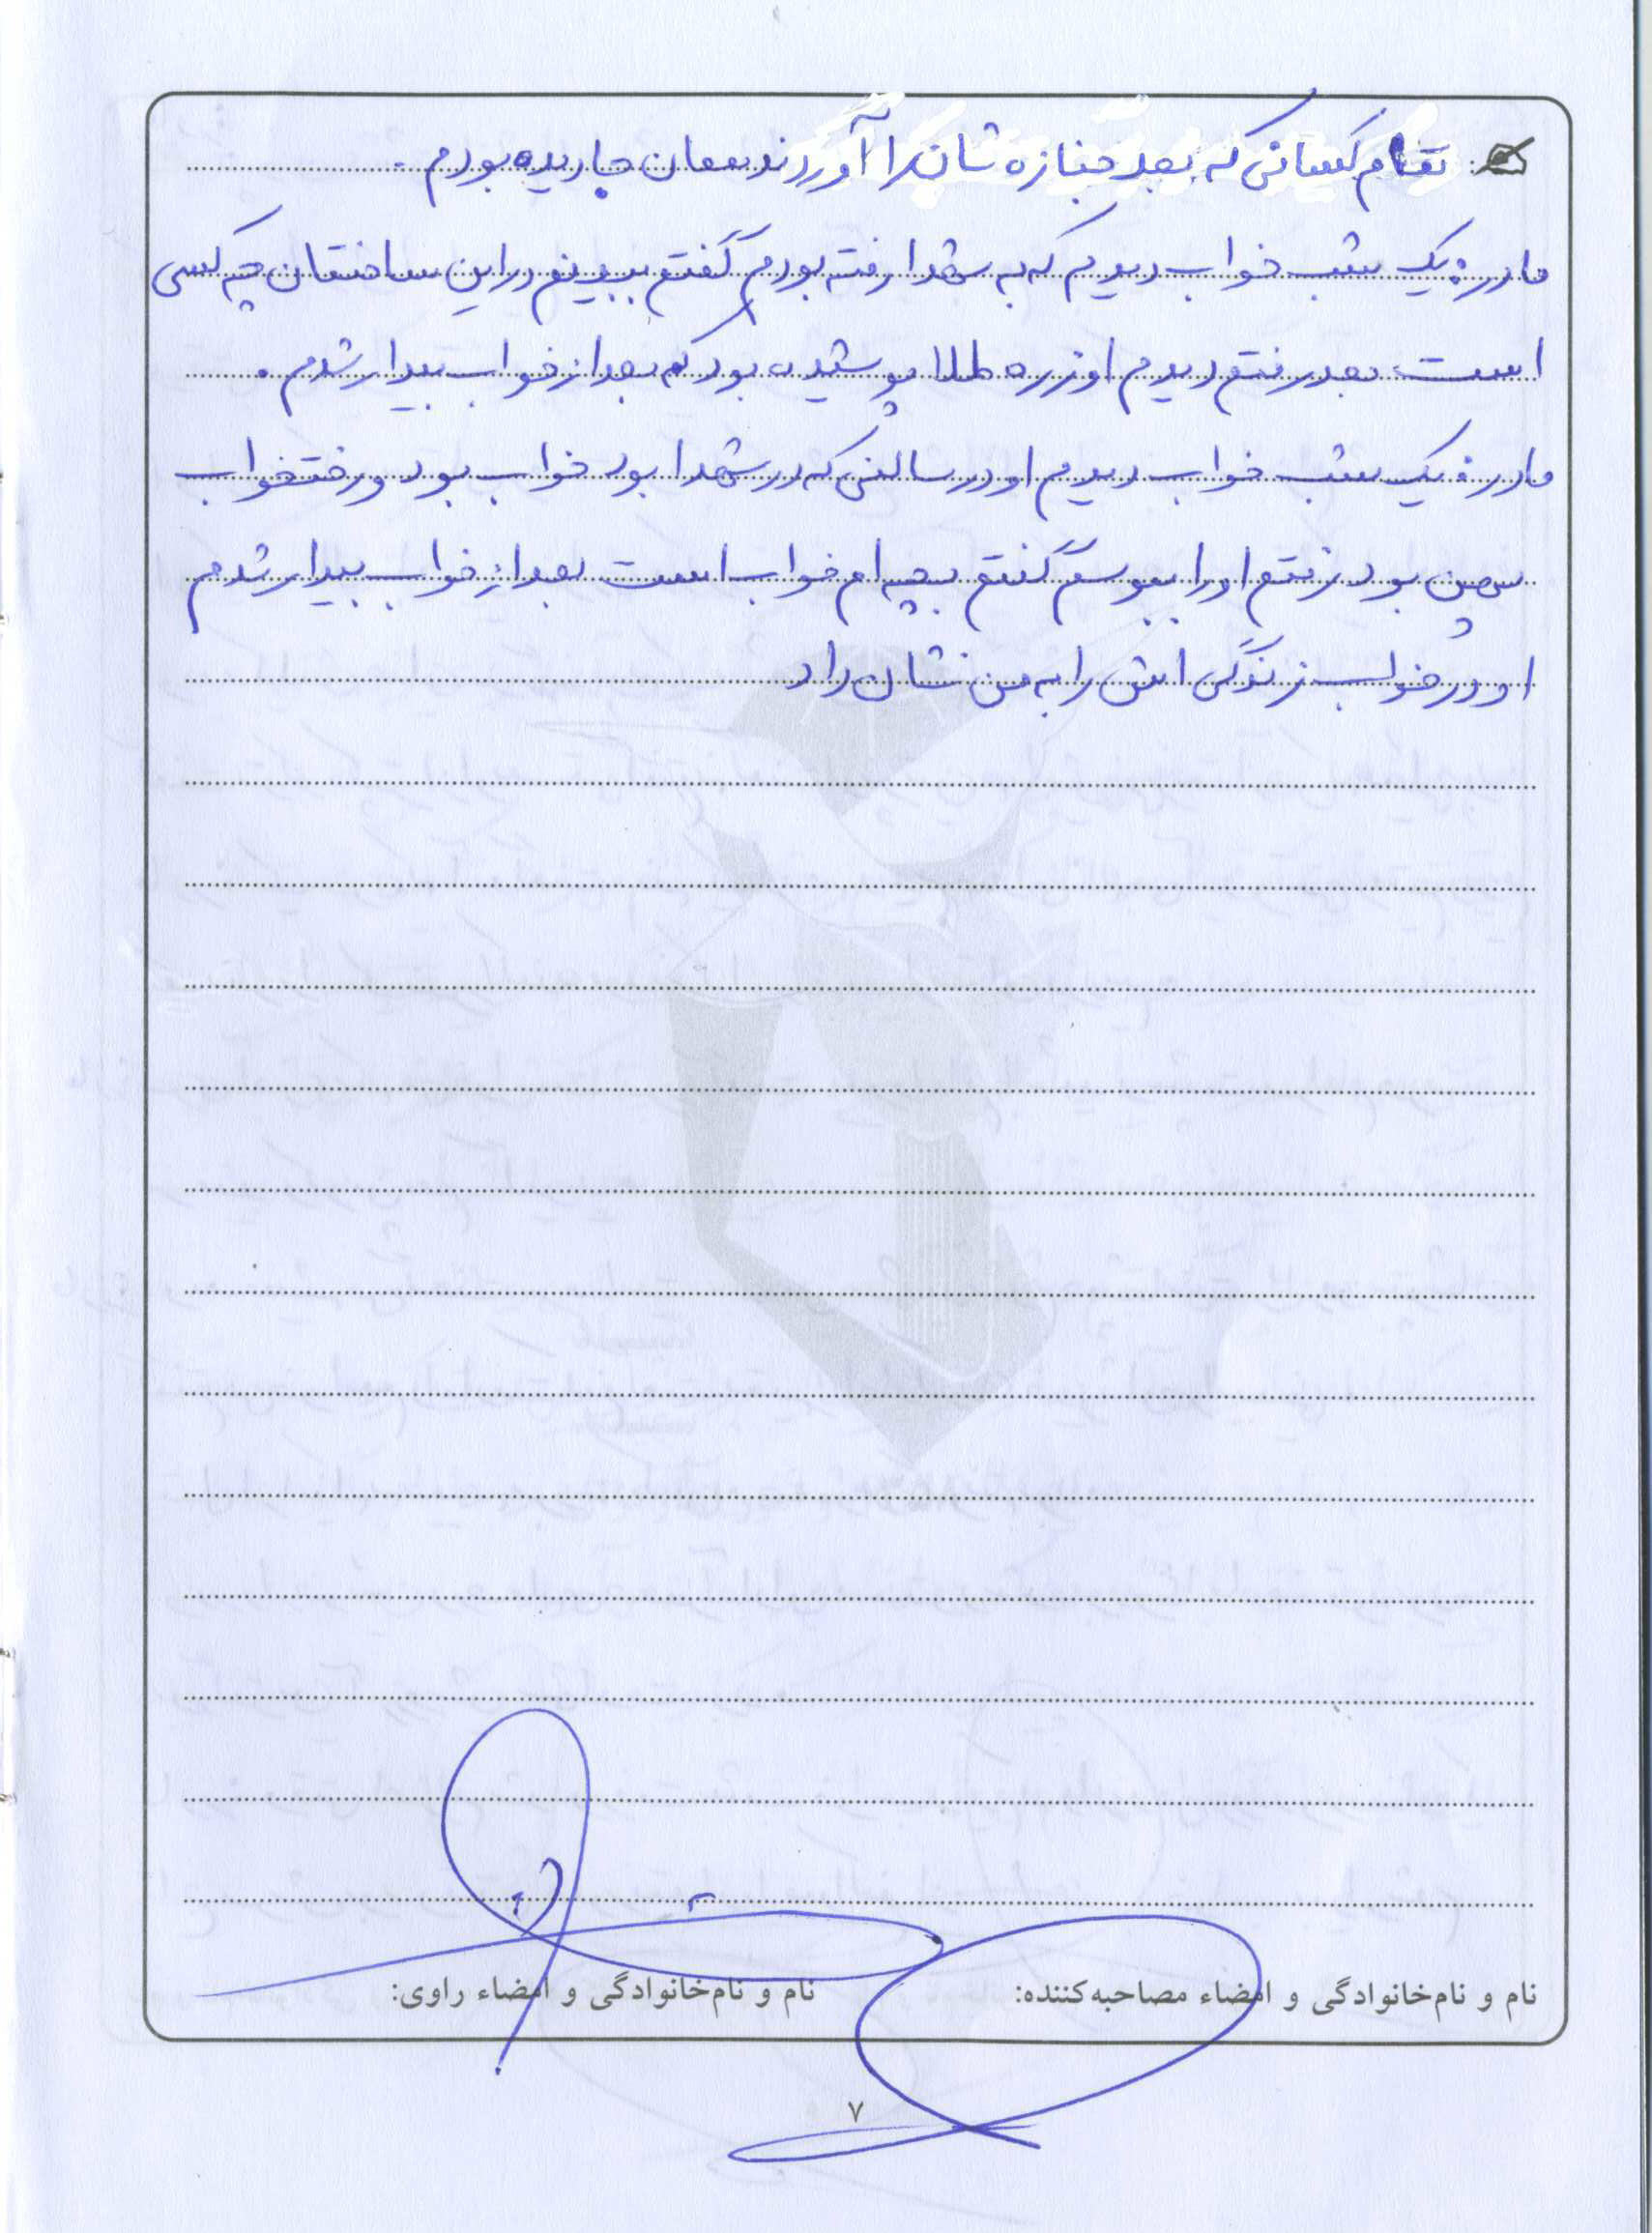 تمام کسانی که بعد جنازه شان را آوردند همان جا دیده بودم.
مادر: یک شب خواب دیدم که به شهدا رفته بودم گفتم ببینم در این ساختمان چه کسی
است بعد رفتم دیدم او زره طلا پوشیده بود که بعد از خواب بیدار شدم.
مادر: یک شب خواب دیدم او در سالنی که در شهدا بود خواب بود و رختخواب
پهن بود رفتم او را ببوسم گفتم بچه ام خواب است بعد از خواب بیدار شدم
او در خواب زندگی اش را به من نشان داد
نام و نام‌خانوادگی و امضاء مصاحبه‌کننده: نام و نام‌خانوادگی و امضاء راوی:
۷